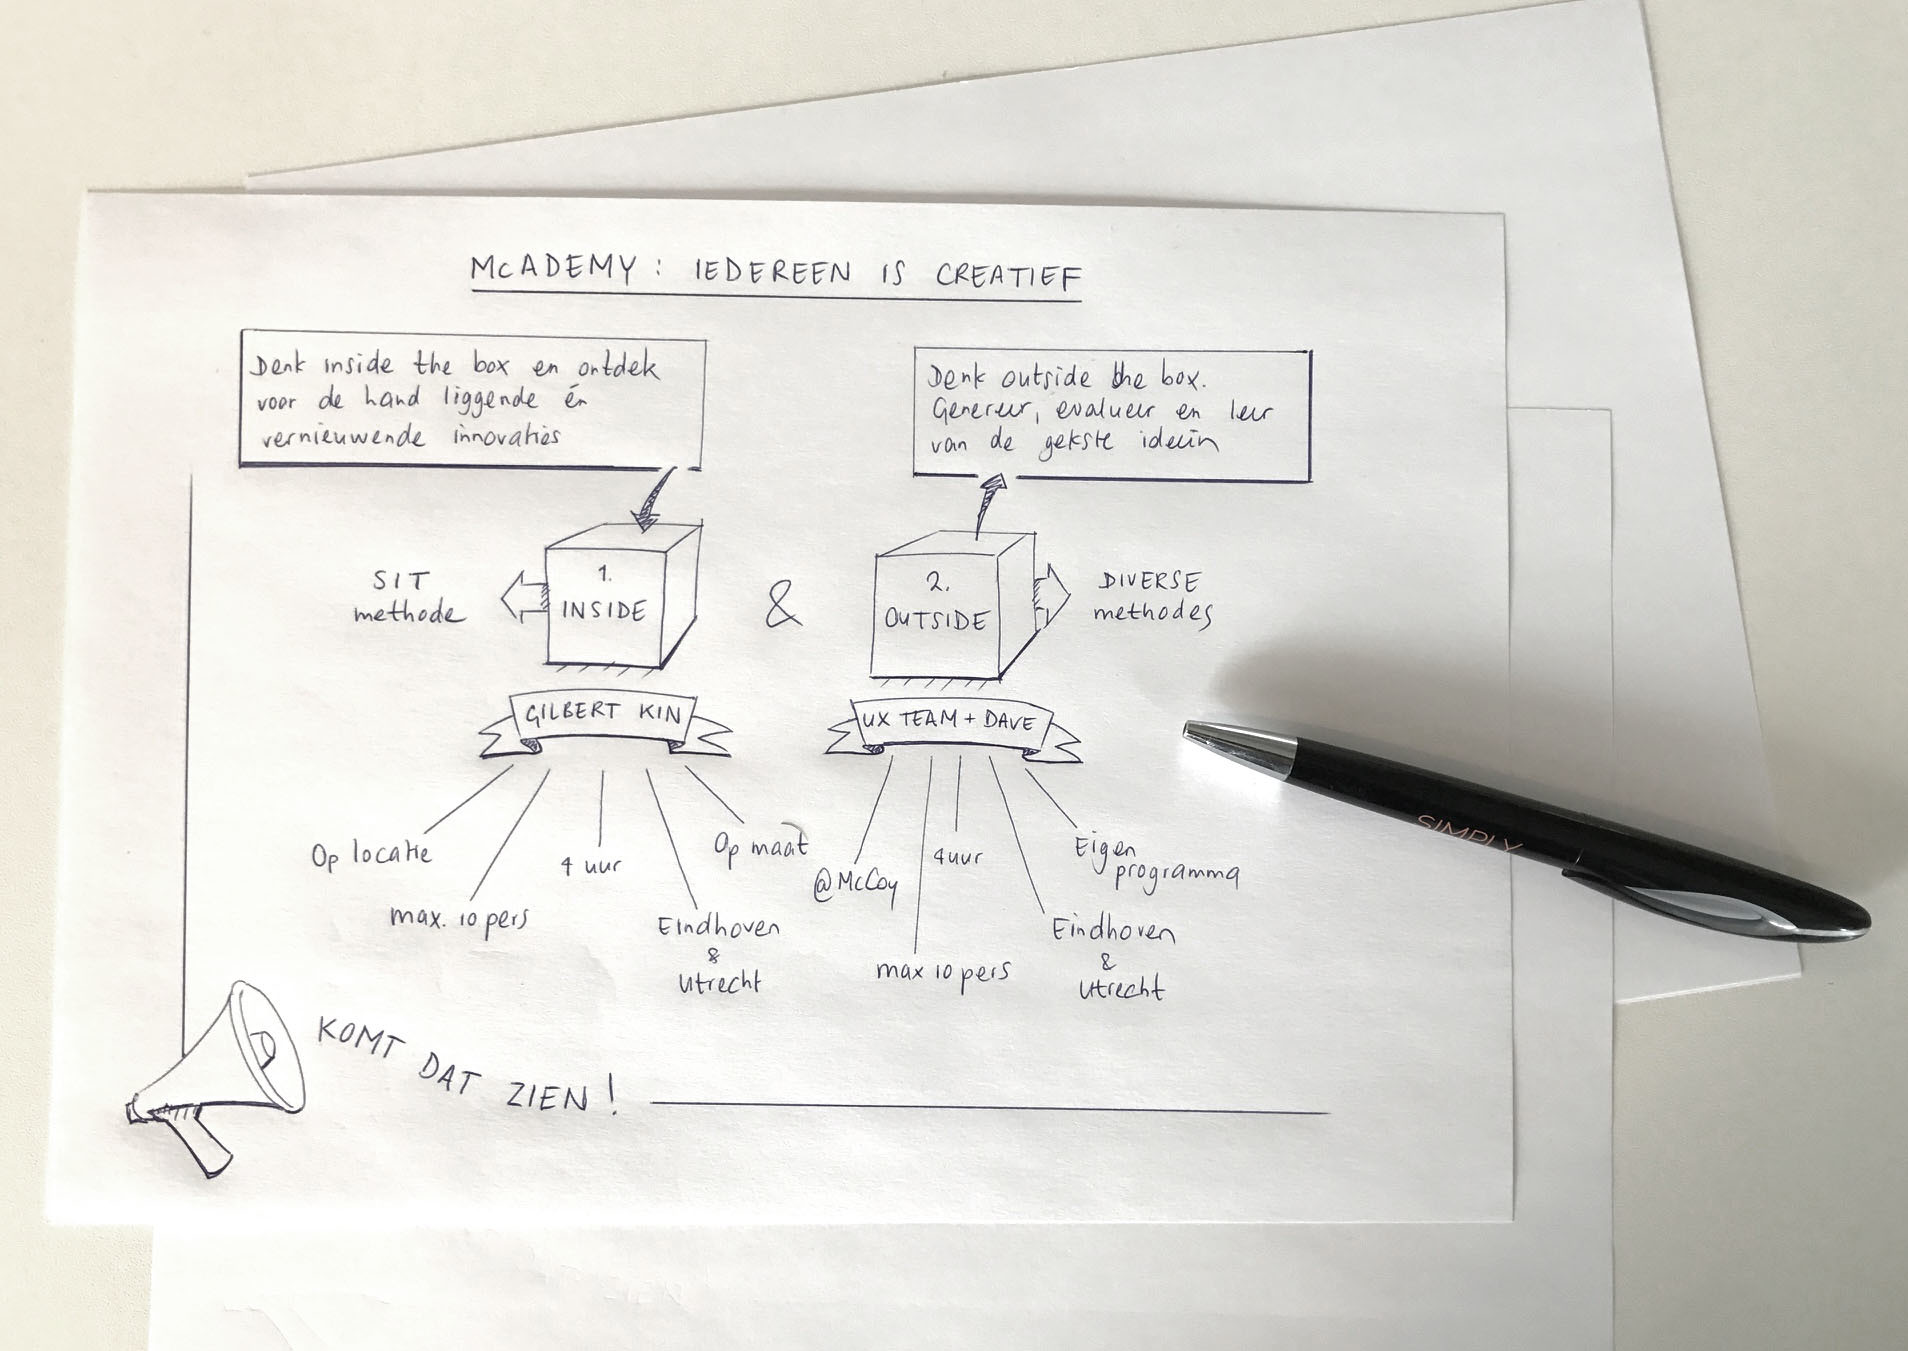 McADEMY: IEDEREEN IS CREATIEF
Denk inside the box en ontdek
voor de hand liggende én
vernieuwende innovaties
Denk outside the box.
Genereer, evalueer en leer
van de gekste ideeën
SIT
methode
1.
INSIDE
&
2.
OUTSIDE
DIVERSE
methodes
GILBERT KIN
UX TEAM + DAVE
Op locatie
max. 10 pers
4 uur
Eindhoven
&
Utrecht
Op maat
@McCoy
max 10 pers
4uur
Eindhoven
&
Utrecht
Eigen
programma
KOMT DAT ZIEN!
SIMPLY